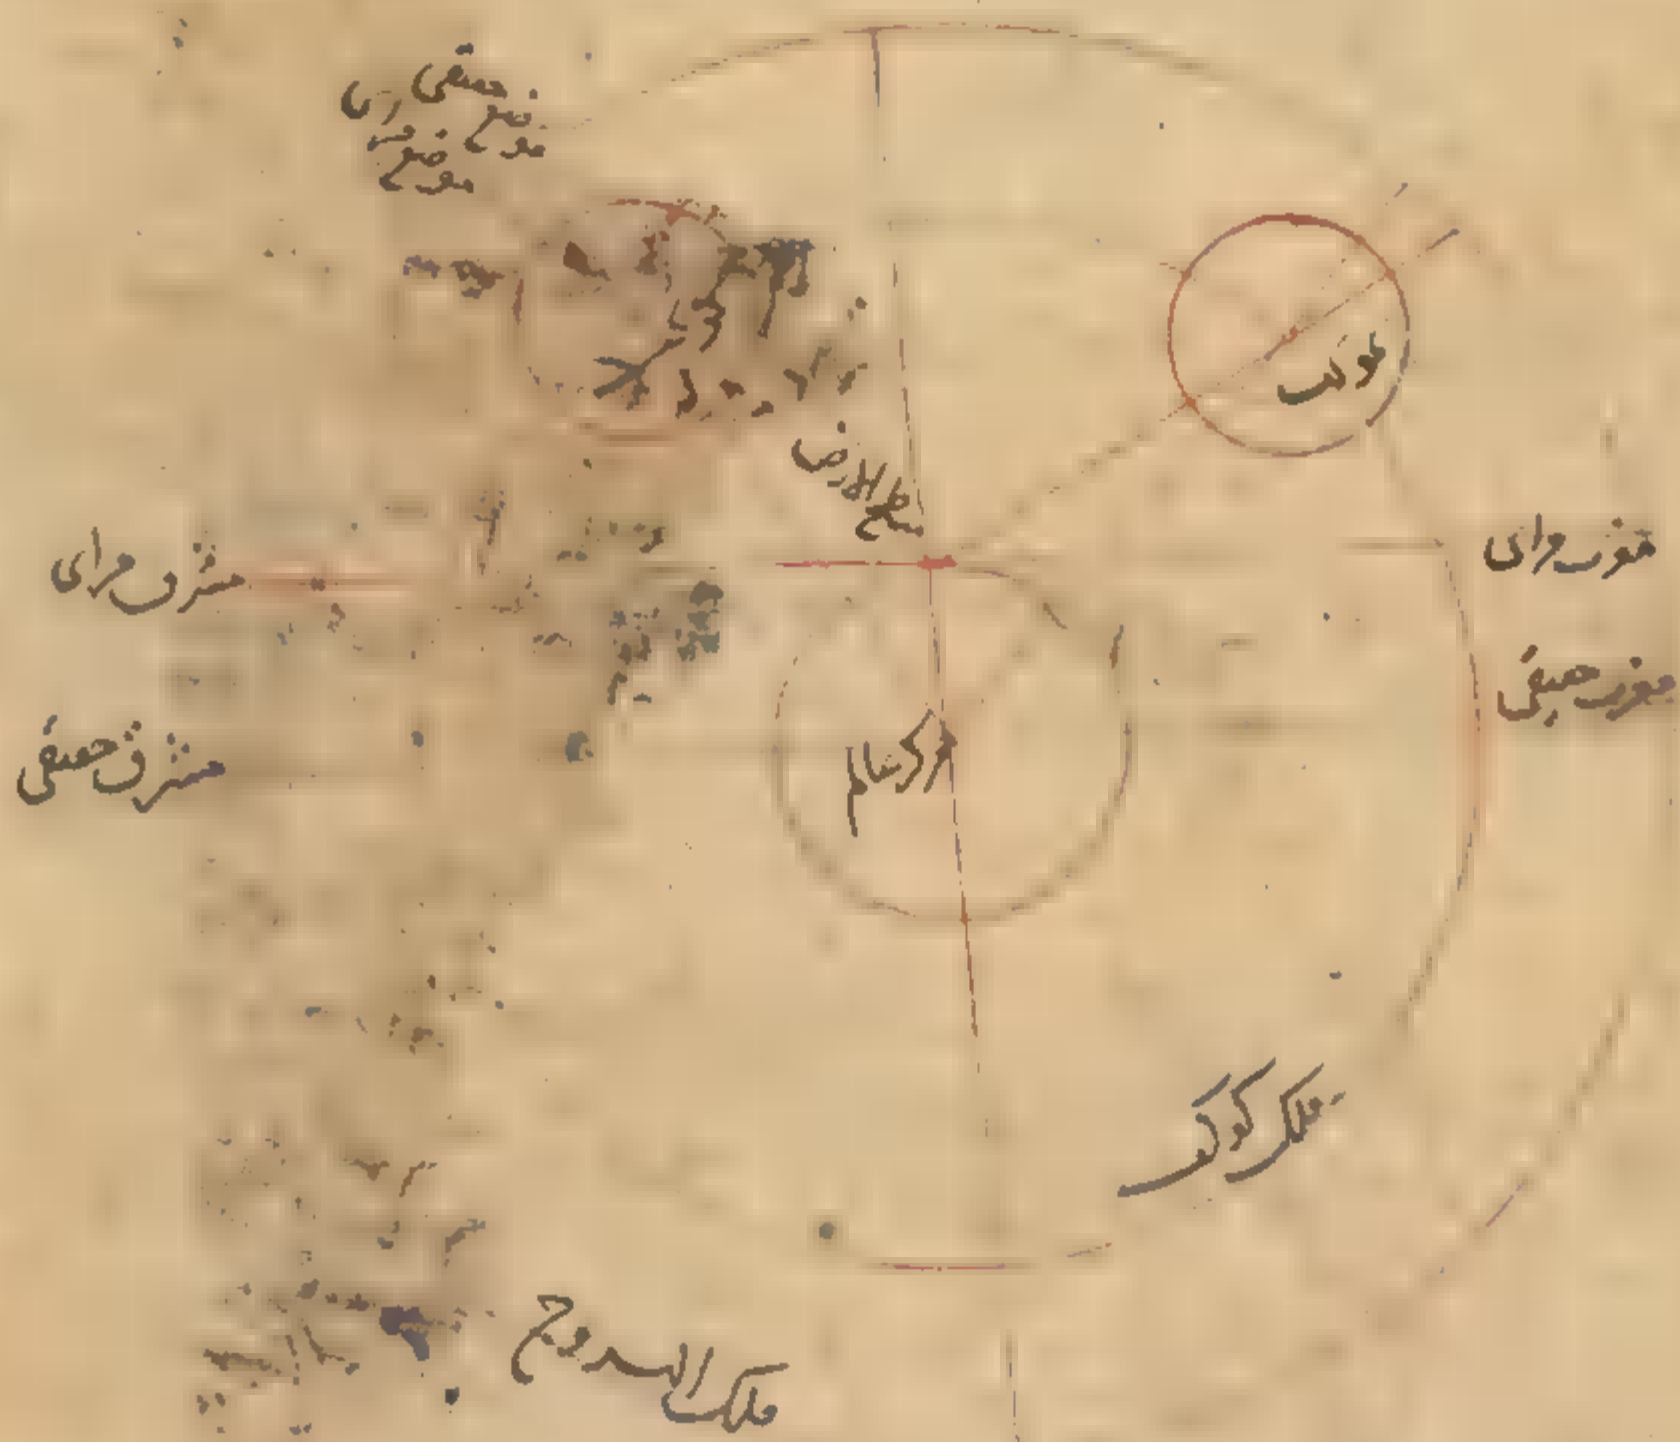 موضع حقيقى
موضع مراى
كوكب
سطح الارض
مغرب مراى
مشرق مراى
مغرب حقيقى
مشرق حقيقى
مركز عالم
فلك كوكب
فلك البروج